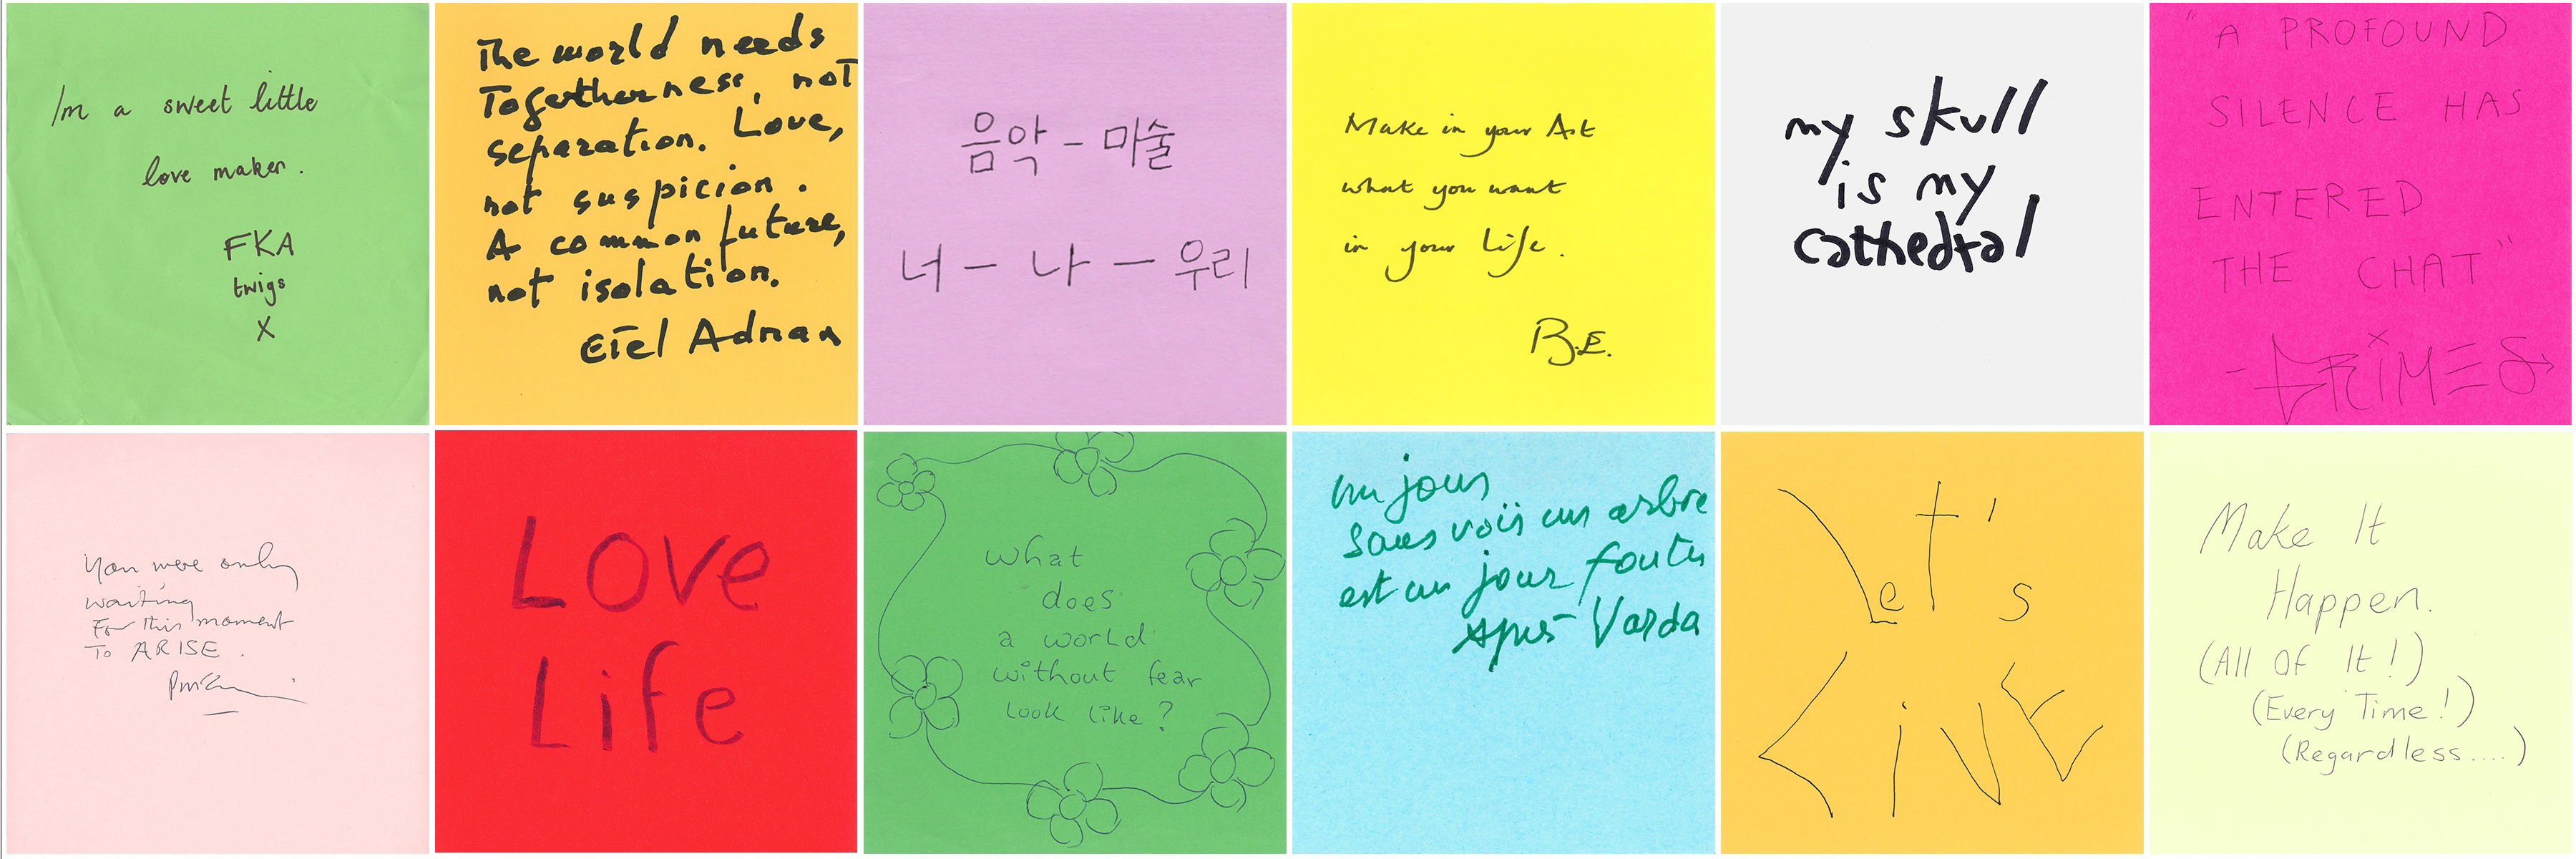 I'm a sweet little
love maker.
FKA
twigs
X
The world needs
Togetherness, not
separation. Love,
not suspicion.
A common future,
not isolation.
Etel Adnan
음악 - 마술
너 - 나 - 우리
Make in your Art
what you want
in your Life.
B.E.
my skull
is my
cathedral
"A PROFOUND
SILENCE HAS
ENTERED
THE CHAT"
- GRIMES
You were only
waiting
For this moment
To ARISE.
Love
Life
what
does
a world
without fear
look like?
un jour
sans voir un arbre
est un jour foutu
Agnès Varda
Let's
LiVE
Make It
Happen.
(All Of It!)
(Every Time!)
(Regardless....)